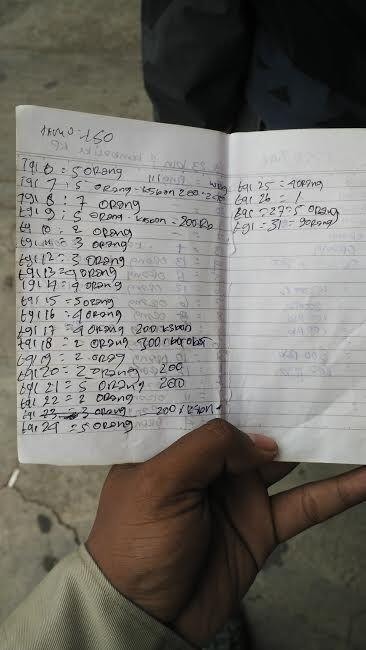 150
Tgl 6 = 5 orang
Tgl 7 : 5 orang - ksbon 200
Tgl 8 : 7 orang
Tgl 9 : 5 orang - ksbon = 200 Rb
tgl 10 = 2 orang
tgl 11 = 3 orang
tgl 12 = 3 orang
tgl 13 = 4 orang
Tgl 14 = 4 orang
tgl 15 = 5 orang
tgl 16 = 4 orang
tgl 17 = 4 orang 200 ksbon
tgl 18 = 2 orang 300
tgl 19 = 2 orang
tgl 20 = 2 orang 200
tgl 21 = 5 orang 200
tgl 22 = 2 orang
tgl 23 3 orang 200 ksbon
tgl 24 = 5 orang
tgl 25 = 4 orang
tgl 26 = 1
27 = 5 orang
tgl = 31 = 9 orang